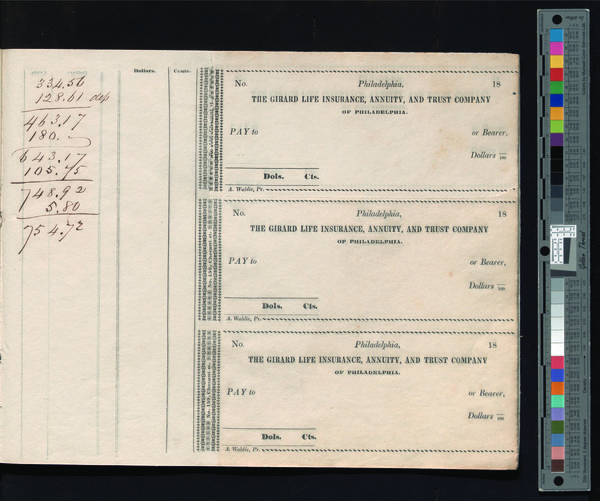 334.56
128.61 dep
463.17
180.
643.17
105.75
748.92
5.80
754.72
Dollars. Cents.
No. Philadelphia, 18
THE GIRARD LIFE INSURANCE, ANNUITY, AND TRUST COMPANY
OF PHILADELPHIA.
PAY to or Bearer,
Dollars /100
Dols. Cts.
A. Waldie, Pr.
No. Philadelphia, 18
THE GIRARD LIFE INSURANCE, ANNUITY, AND TRUST COMPANY
OF PHILADELPHIA.
PAY to or Bearer,
Dollars /100
Dols. Cts.
A. Waldie, Pr.
No. 159, Chesnut st.
No. Philadelphia, 18
THE GIRARD LIFE INSURANCE, ANNUITY, AND TRUST COMPANY
OF PHILADELPHIA.
PAY to or Bearer,
Dollars /100
Dols. Cts.
A. Waldie, Pr.
No. 159, Chesnut st.
Golden Thread